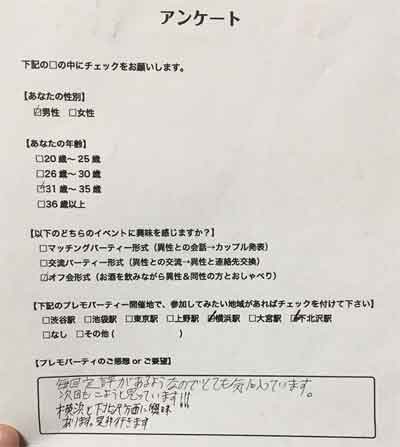 アンケート
下記の□の中にチェックをお願いします。
【あなたの性別】
☑男性 □女性
【あなたの年齢】
□20歳～25歳
□26歳～30歳
☑31歳～35歳
□36歳以上
【以下のどちらのイベントに興味を感じますか？】
□マッチングパーティー形式（異性との会話→カップル発表）
□交流パーティー形式（異性との交流→異性と連絡交換）
☑オフ会形式（お酒を飲みながら異性＆同性の方とおしゃべり）
【下記のプレモパーティー開催地で、参加してみたい地域があればチェックを付けて下さい】
□渋谷駅 □池袋駅 □東京駅 □上野駅 ☑横浜駅 □大宮駅 ☑下北沢駅
□なし □その他（ ）
【プレモパーティのご感想 or ご要望】
毎回定評があるようなのでとても気に入っています。
次回もこようと思っています!!!
横浜と下北沢方面に興味
あります。是非行きます